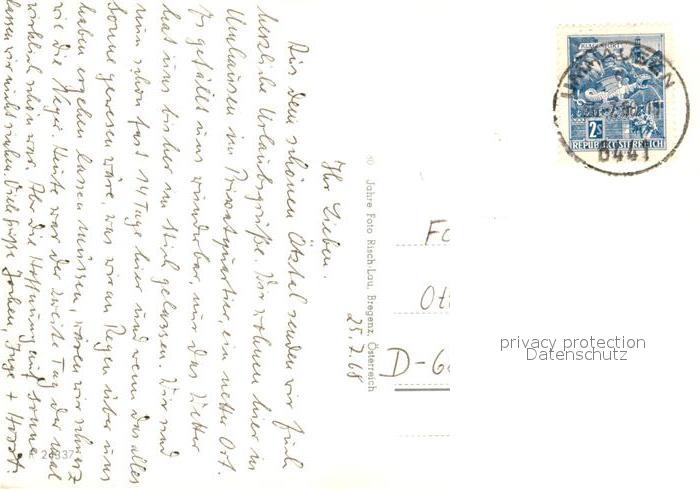 Ihr Lieben.
Aus dem schönen Ötztal senden wir Euch
herzliche Urlaubsgrüße. Wir wohnen hier in
Umhausen im Privatquartier, ein netter Ort.
Es gefällt uns wunderbar, nur das Wetter
hat uns bisher im Stich gelassen. Wir sind
nun schon fast 14 Tage hier und wenn das alles
Sonne gewesen wäre, was wir an Regen über uns
haben ergehen lassen müssen, wären wir schwarz
wie die Neger. Heute war der zweite Tag der mal
wirklich schön war. Aber die Hoffnung auf Sonne
lassen wir nicht sinken. Viele Grüße Jochen, Inge + Horst.
25.7.68
50 Jahre Foto Risch-Lau, Bregenz, Österreich
2 S
REPUBLIK ÖSTERREICH
UMHAUSEN
6441
D-6
privacy protection
Datenschutz